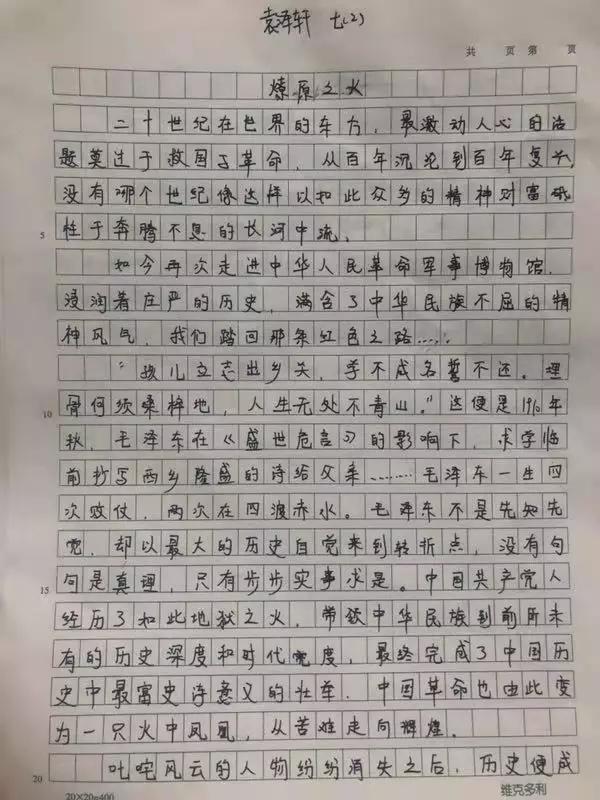 袁泽轩 七(2)
共 页 第 页
燎原之火
二十世纪在世界的东方，最激动人心的话
题莫过于救国与革命，从百年沉沦到百年复兴，
没有哪个世纪像这样以如此众多的精神财富碰
性于奔腾不息的长河中流、
5
如今再次走进中华人民革命军事博物馆.
浸润着庄严的历史，满含了中华民族不屈的精
神风气，我们踏回那条红色之路……
"孩儿立志出乡关，学不成名誓不还。埋
骨何须桑梓地，人生无处不青山。"这便是1910年
10
秋，毛泽东在《盛世危言》的影响下，求学临
前抄写西乡隆盛的诗给父亲………毛泽东一生四
次败仗，两次在四渡赤水。毛泽东不是先知先
觉，却以最大的历史自觉来到转折点，没有句
句是真理，只有步步实事求是。中国共产党人
15
经历了如此地狱之火，带领中华民族到前所未
有的历史深度和时代宽度，最终完成了中国历
史中最富史诗意义的壮举.中国革命也由此变
为一只火中凤凰，从苦难走向辉煌。
叱咤风云的人物纷纷消失之后，历史便成
20
20×20=400
维克多利